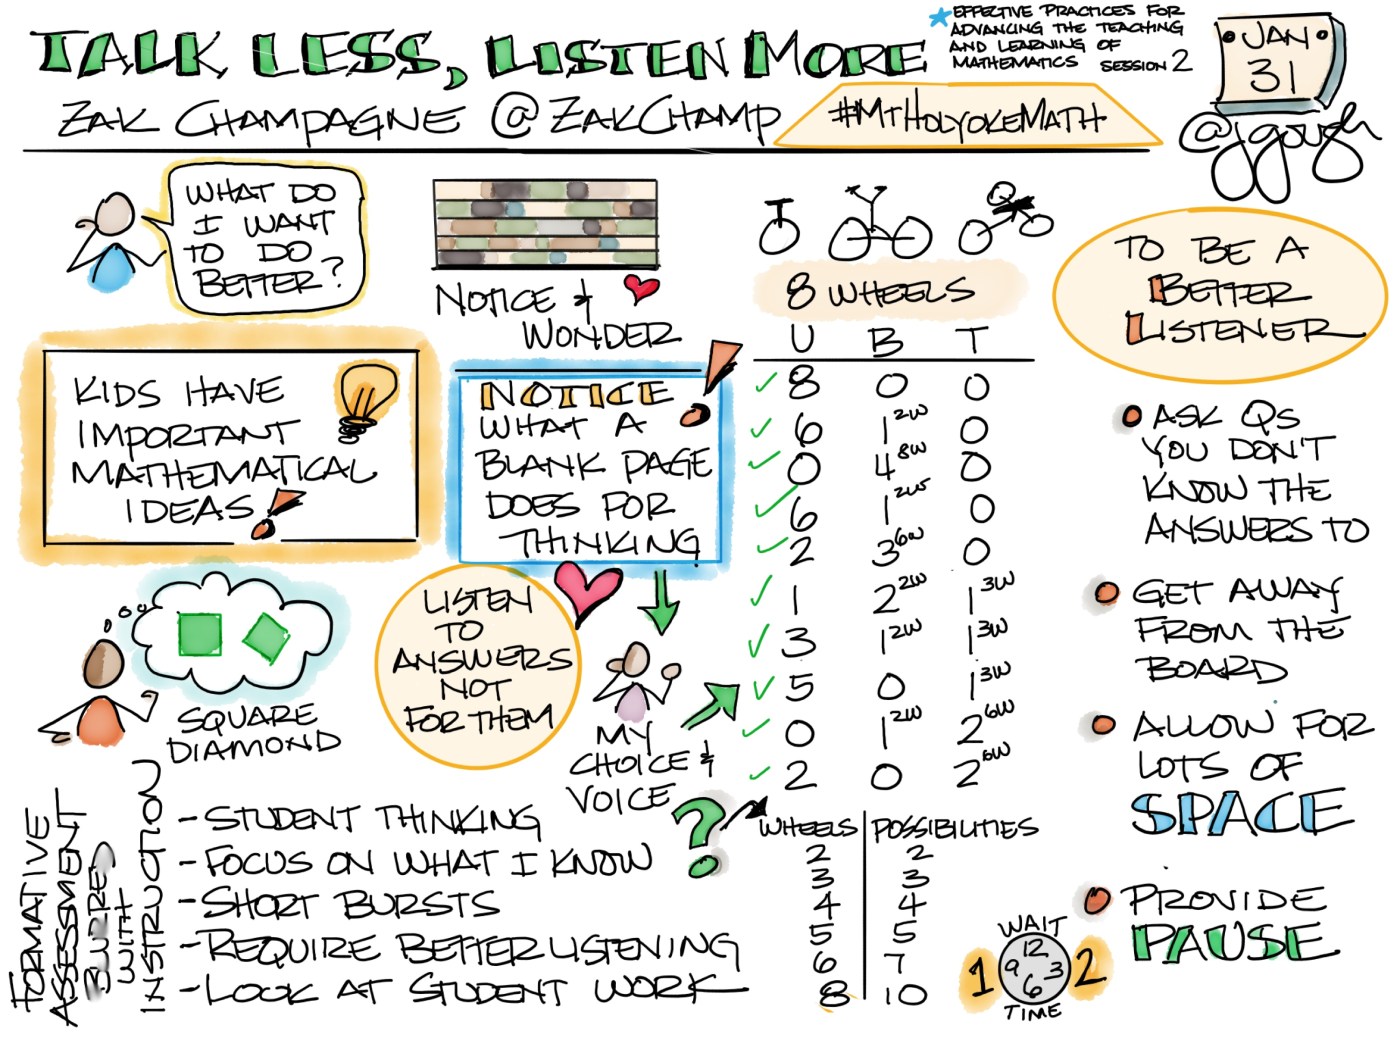 TALK LESS, LISTEN MORE
ZAK CHAMPAGNE @ZAKCHAMP
#MTHOLYOKEMATH
EFFECTIVE PRACTICES FOR
ADVANCING THE TEACHING
AND LEARNING OF
MATHEMATICS SESSION 2
JAN
31
@jgough
WHAT DO
I WANT
TO DO
BETTER?
NOTICE &
WONDER
KIDS HAVE
IMPORTANT
MATHEMATICAL
IDEAS!
NOTICE
WHAT A
BLANK PAGE
DOES FOR
THINKING
!
SQUARE
DIAMOND
LISTEN
TO
ANSWERS
NOT
FOR THEM
MY
CHOICE &
VOICE
FORMATIVE
ASSESSMENT
BLURRED
WITH
INSTRUCTION
- STUDENT THINKING
- FOCUS ON WHAT I KNOW
- SHORT BURSTS
- REQUIRE BETTER LISTENING
- LOOK AT STUDENT WORK
?
8 WHEELS
U B T
✓ 8 0 0
✓ 6 1 2W 0
✓ 0 4 8W 0
✓ 6 1 2W 0
✓ 2 3 6W 0
✓ 1 2 2W 1 3W
✓ 3 1 2W 1 3W
✓ 5 0 1 3W
✓ 0 1 2W 2 6W
✓ 2 0 2 6W
WHEELS POSSIBILITIES
2 2
3 3
4 4
5 5
6 7
8 10
WAIT
1 12 3 6 9 2
TIME
TO BE A
BETTER
LISTENER
ASK QS
YOU DON'T
KNOW THE
ANSWERS TO
GET AWAY
FROM THE
BOARD
ALLOW FOR
LOTS OF
SPACE
PROVIDE
PAUSE